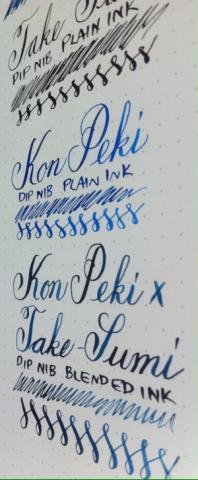 Take
DIP NIB PLAIN INK
Kon Peki
DIP NIB PLAIN INK
Kon Peki x
Take-Sumi
DIP NIB BLENDED INK